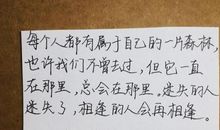 每个人都有属于自己的一片森林,
也许我们不曾去过,但它一直
在那里,总会在那里,迷失的人
迷失了,相逢的人会再相逢。